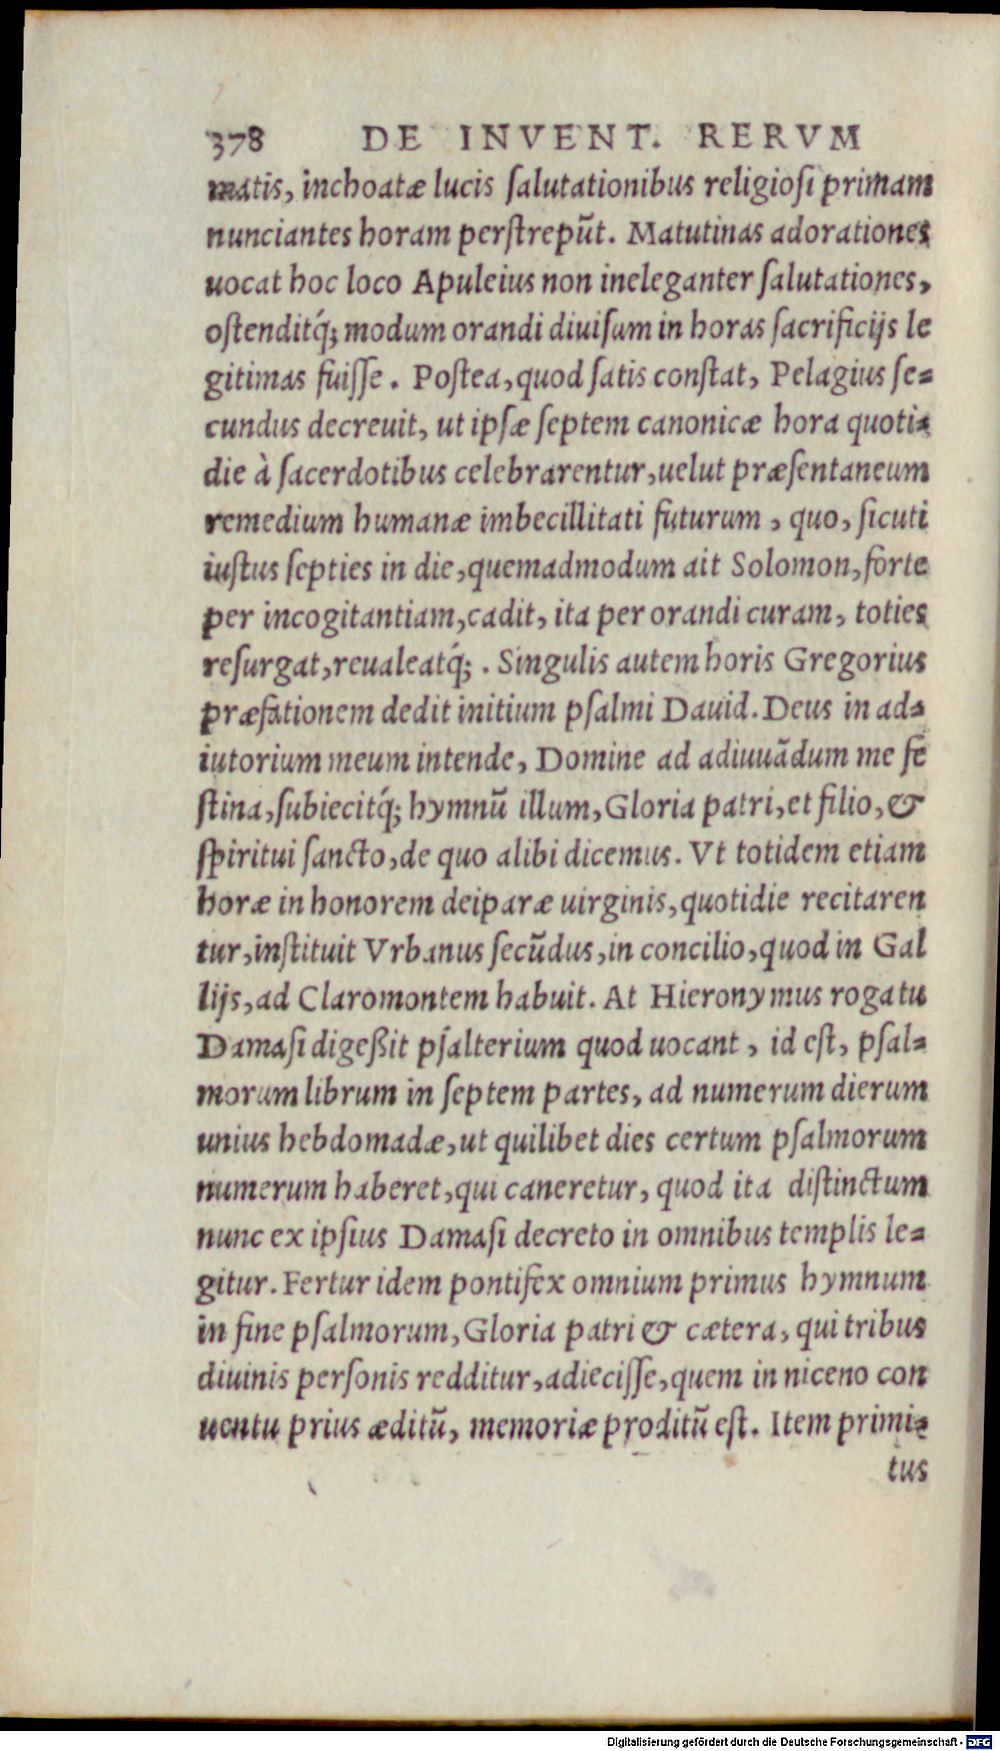 378 DE INVENT. RERVM
matis, inchoatæ lucis ſalutationibus religioſi primam
nunciantes horam perſtrepũt. Matutinas adorationes
uocat hoc loco Apuleius non ineleganter ſalutationes,
oſtenditq́; modum orandi diuiſum in horas ſacrificijs le
gitimas fuiſſe. Poſtea, quod ſatis conſtat, Pelagius ſe=
cundus decreuit, ut ipſæ ſeptem canonicæ hora quoti=
die à ſacerdotibus celebrarentur, uelut præſentaneum
remedium humanæ imbecillitati futurum, quo, ſicuti
iuſtus ſepties in die, quemadmodum ait Solomon, forte
per incogitantiam, cadit, ita per orandi curam, toties
reſurgat, reualeatq́;. Singulis autem horis Gregorius
præfationem dedit initium pſalmi Dauid. Deus in ad=
iutorium meum intende, Domine ad adiuuãdum me fe
ſtina, ſubiecitq́; hymnũ illum, Gloria patri, et filio, &
ſpiritui ſancto, de quo alibi dicemus. Vt totidem etiam
horæ in honorem deiparæ uirginis, quotidie recitaren
tur, inſtituit Vrbanus ſecũdus, in concilio, quod in Gal
lijs, ad Claromontem habuit. At Hieronymus rogatu
Damaſi digeßit pſalterium quod uocant, id eſt, pſal=
morum librum in ſeptem partes, ad numerum dierum
unius hebdomadæ, ut quilibet dies certum pſalmorum
numerum haberet, qui caneretur, quod ita diſtinctum
nunc ex ipſius Damaſi decreto in omnibus templis le=
gitur. Fertur idem pontifex omnium primus hymnum
in fine pſalmorum, Gloria patri & cætera, qui tribus
diuinis perſonis redditur, adieciſſe, quem in niceno con
uentu prius æditũ, memoriæ proditũ eſt. Item primi=
tus
Digitalisierung gefördert durch die Deutsche Forschungsgemeinschaft - DFG